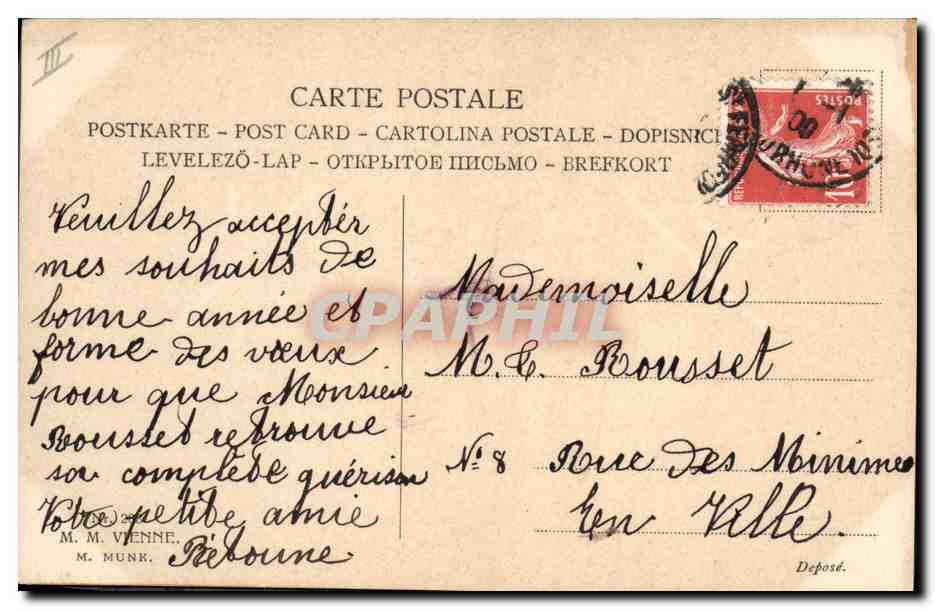 III
CARTE POSTALE
POSTKARTE – POST CARD – CARTOLINA POSTALE – DOPISNIC
LEVELEZŐ-LAP – ОТКРЫТОЕ ПИСЬМО – BREFKORT
POSTES
10
Veuillez accepter
mes souhaits de
bonne année et
forme des vœux
pour que Monsieur
Rousset retrouve
sa complète guérison
Votre petite amie
M. M. VIENNE.
M. MUNK.
Mademoiselle
M. C. Rousset
No 8 Rue des Minimes
En Ville.
Deposé.
CPAPHIL